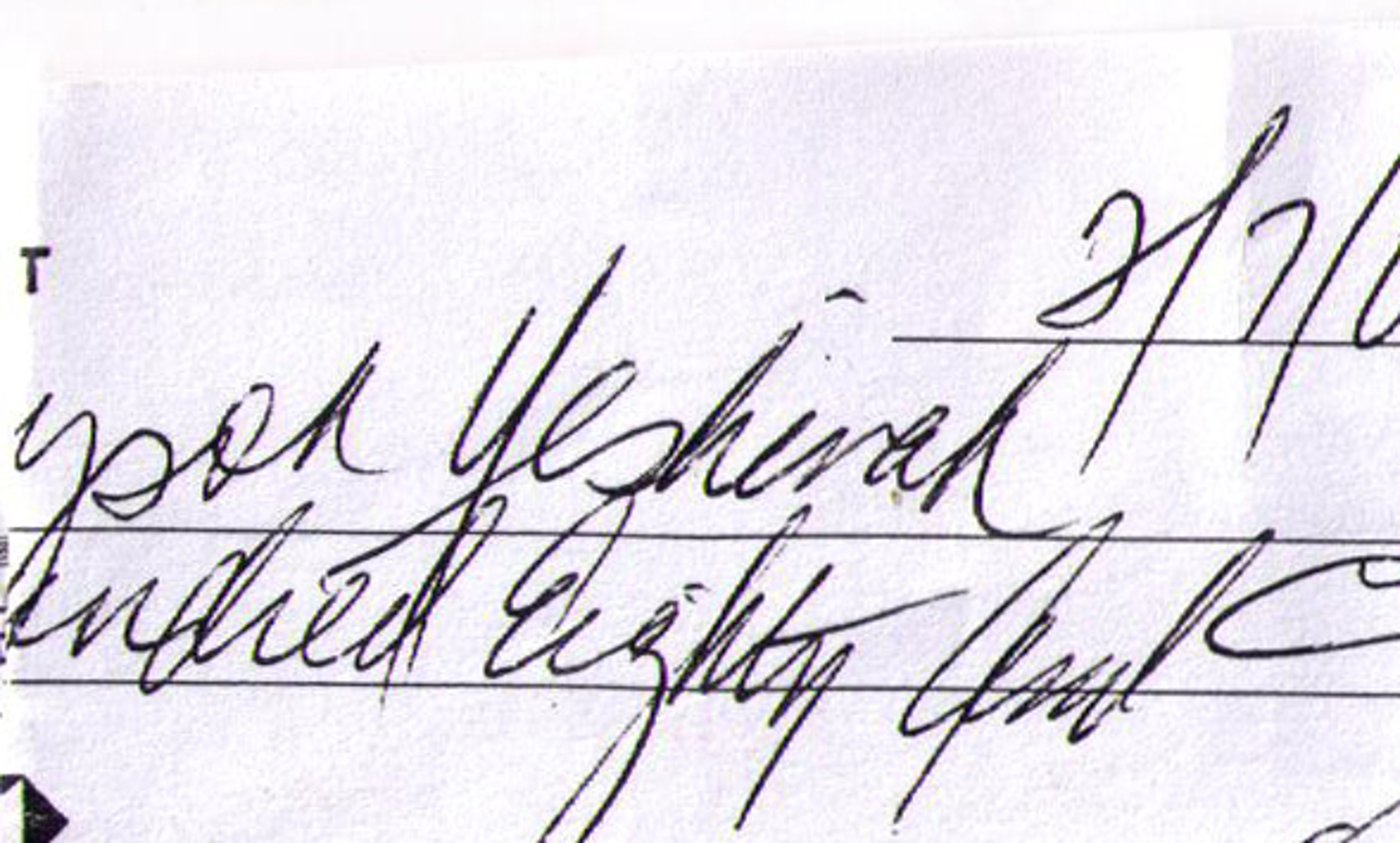 2/7/
T
yson Yeshivah
undred Eighty and